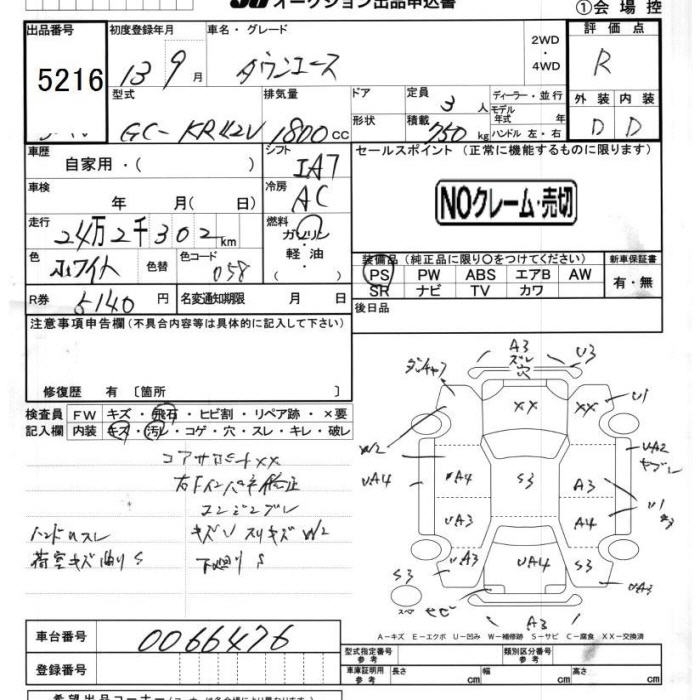 オークション出品申込書
①会場控
出品番号 初度登録年月 車名・グレード 2WD・4WD 評価点
5216 13 9月 タウンエース R
型式 排気量 ドア 定員 ディーラー・並行 外装 内装
GC-KR42V 1800CC 形状 3人 積載 750kg モデル年式 年 ハンドル 左・右 D D
車歴 自家用・( ) シフト IA7 セールスポイント (正常に機能するものに限ります)
車検 年 月( 日) 冷房 AC
NOクレーム・売切
走行 24万2千302km 燃料 ガソリン・軽油
色 ホワイト 色替 色コード 058
装備品 (純正品に限り○をつけてください) 新車保証書
PS PW ABS エアB AW 有・無
SR ナビ TV カワ
R券 5140円 名変通知期限 月 日 後日品
注意事項申告欄 (不具合内容等は具体的に記入して下さい)
修復歴 有 〔箇所 〕
検査員記入欄 FW キズ・飛石・ヒビ割・リペア跡・×要
内装 キズ・汚レ・コゲ・穴・スレ・キレ・破レ
コアサポートXX
右Fインパネ修正
エンジンブレ
ハンドルスレ キズU スリキズ W2
荷室キズ曲りS 下廻りS
A3 ズレ 穴 U3
XX XX U1
W2 UA2
UA4 A4 S3 A3 U1
UA3 A4
UA3 UA4 S3 UA3
S3 スペ A3
A-キズ E-エクボ U-凹み W-補修跡 S-サビ C-腐食 XX-交換済
車台番号 0066476
型式指定番号 参考 類別区分番号 参考
登録番号 車庫証明用 参考 長さ cm 幅 cm 高さ cm
希望出品コーナー